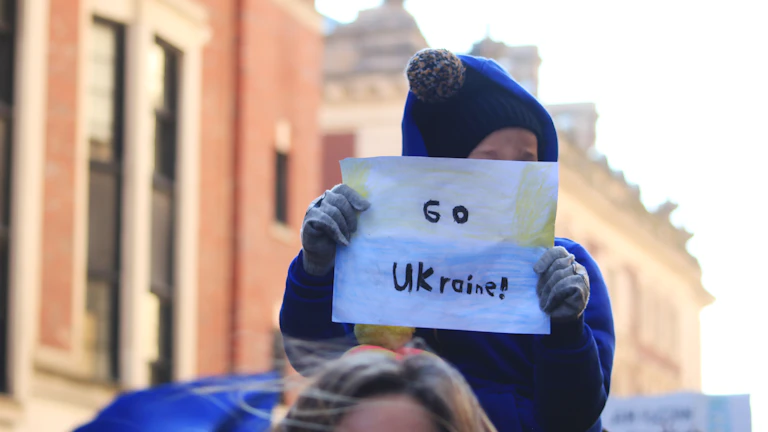 GO
UKraine!